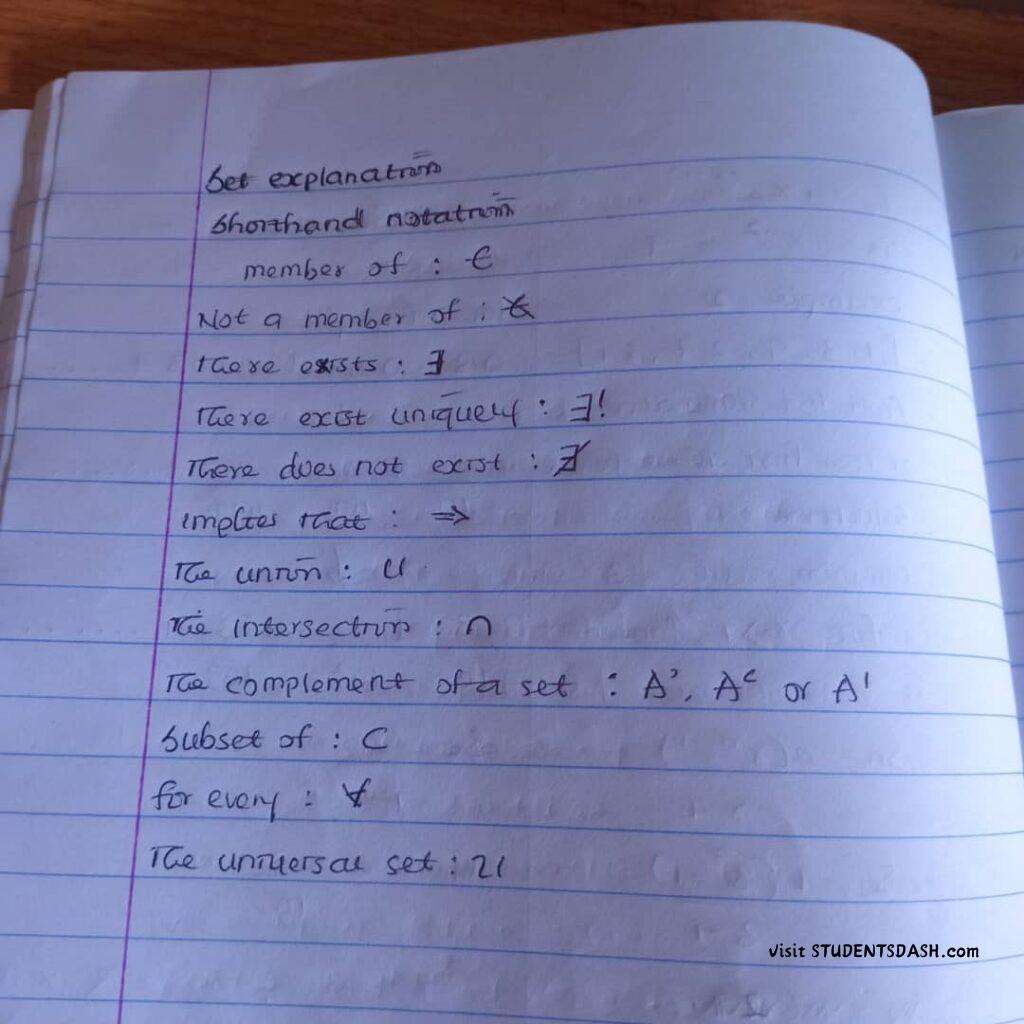 Set explanation
Shorthand notation
member of : ∈
Not a member of : ∉
there exists : ∃
There exist uniquely : ∃!
There does not exist : ∄
implies that : ⇒
The union : ∪
The intersection : ∩
The complement of a set : A', Aᶜ or A¹
Subset of : ⊂
for every : ∀
The universal set : U
visit STUDENTSDASH.com